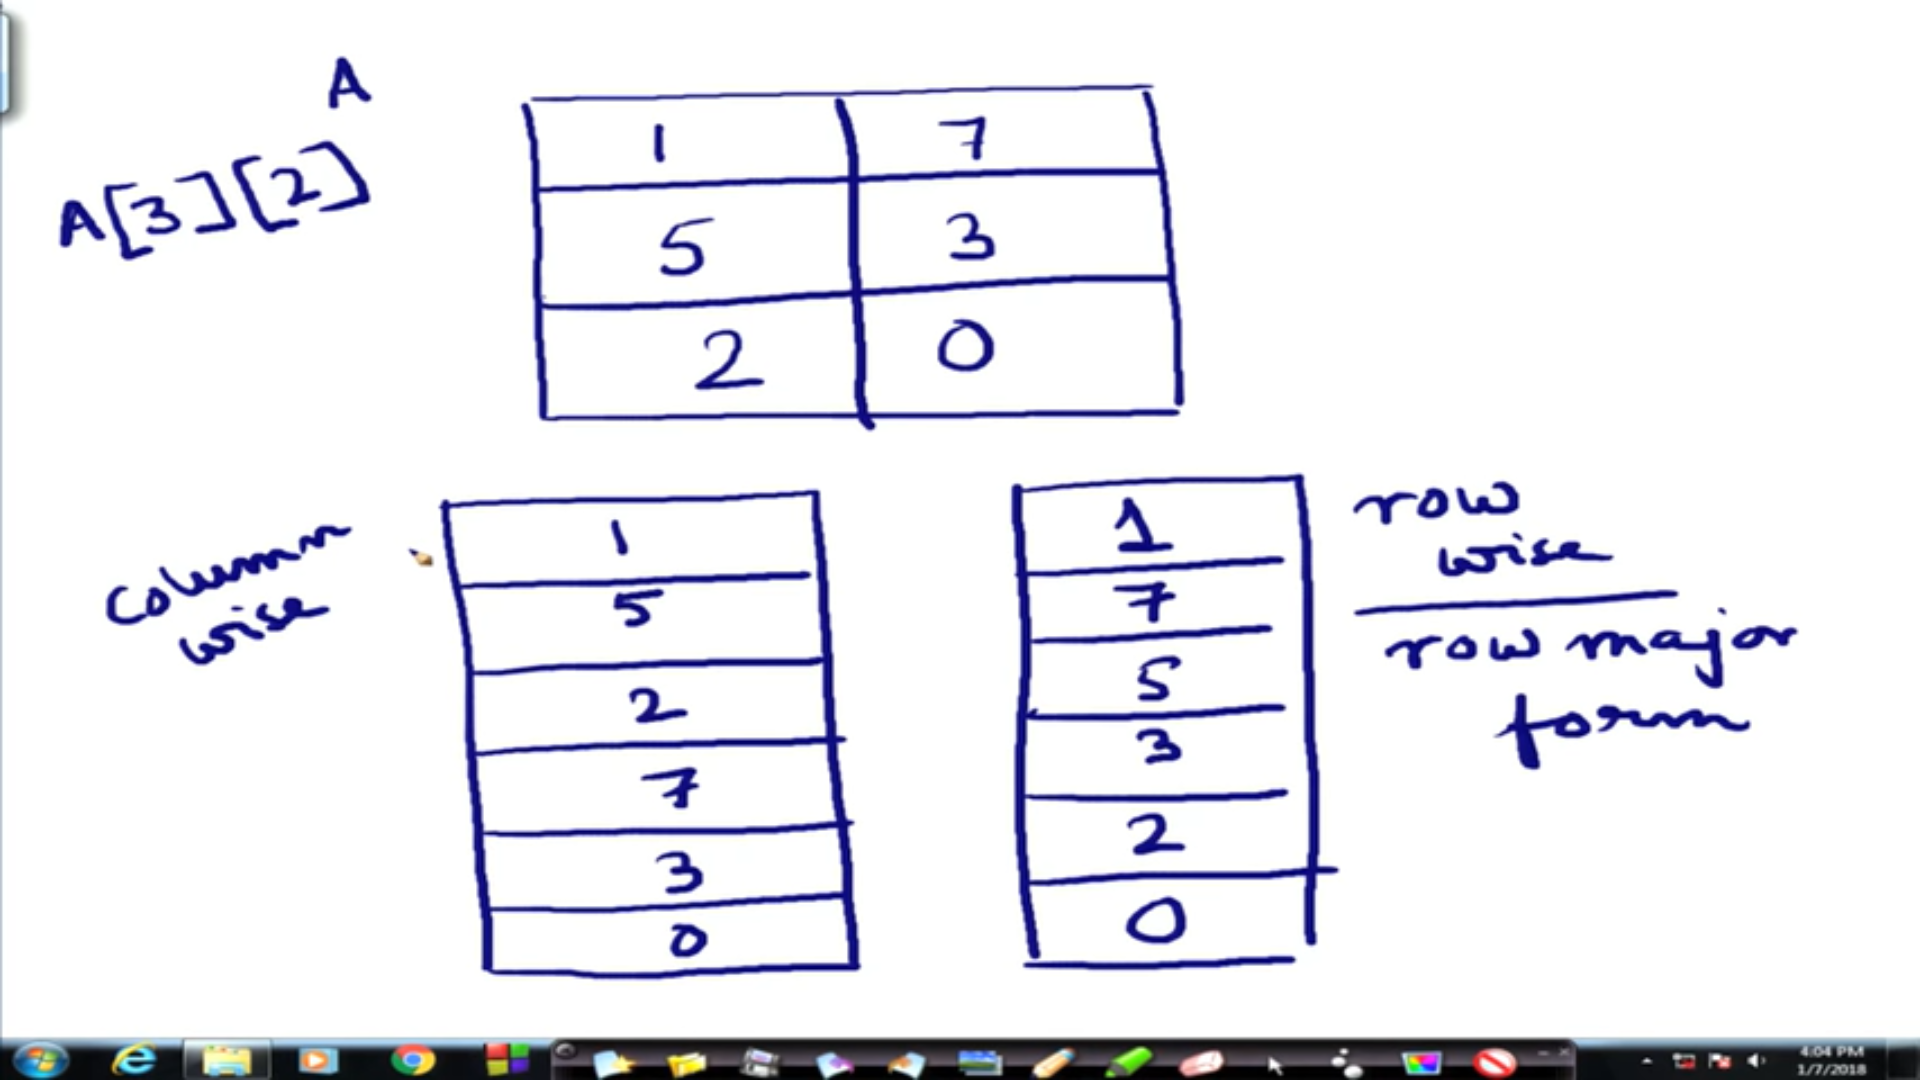 A
A[3][2]
1 7
5 3
2 0
column
wise
1
5
2
7
3
0
1
7
5
3
2
0
row
wise
row major
form
4:04 PM
1/7/2018